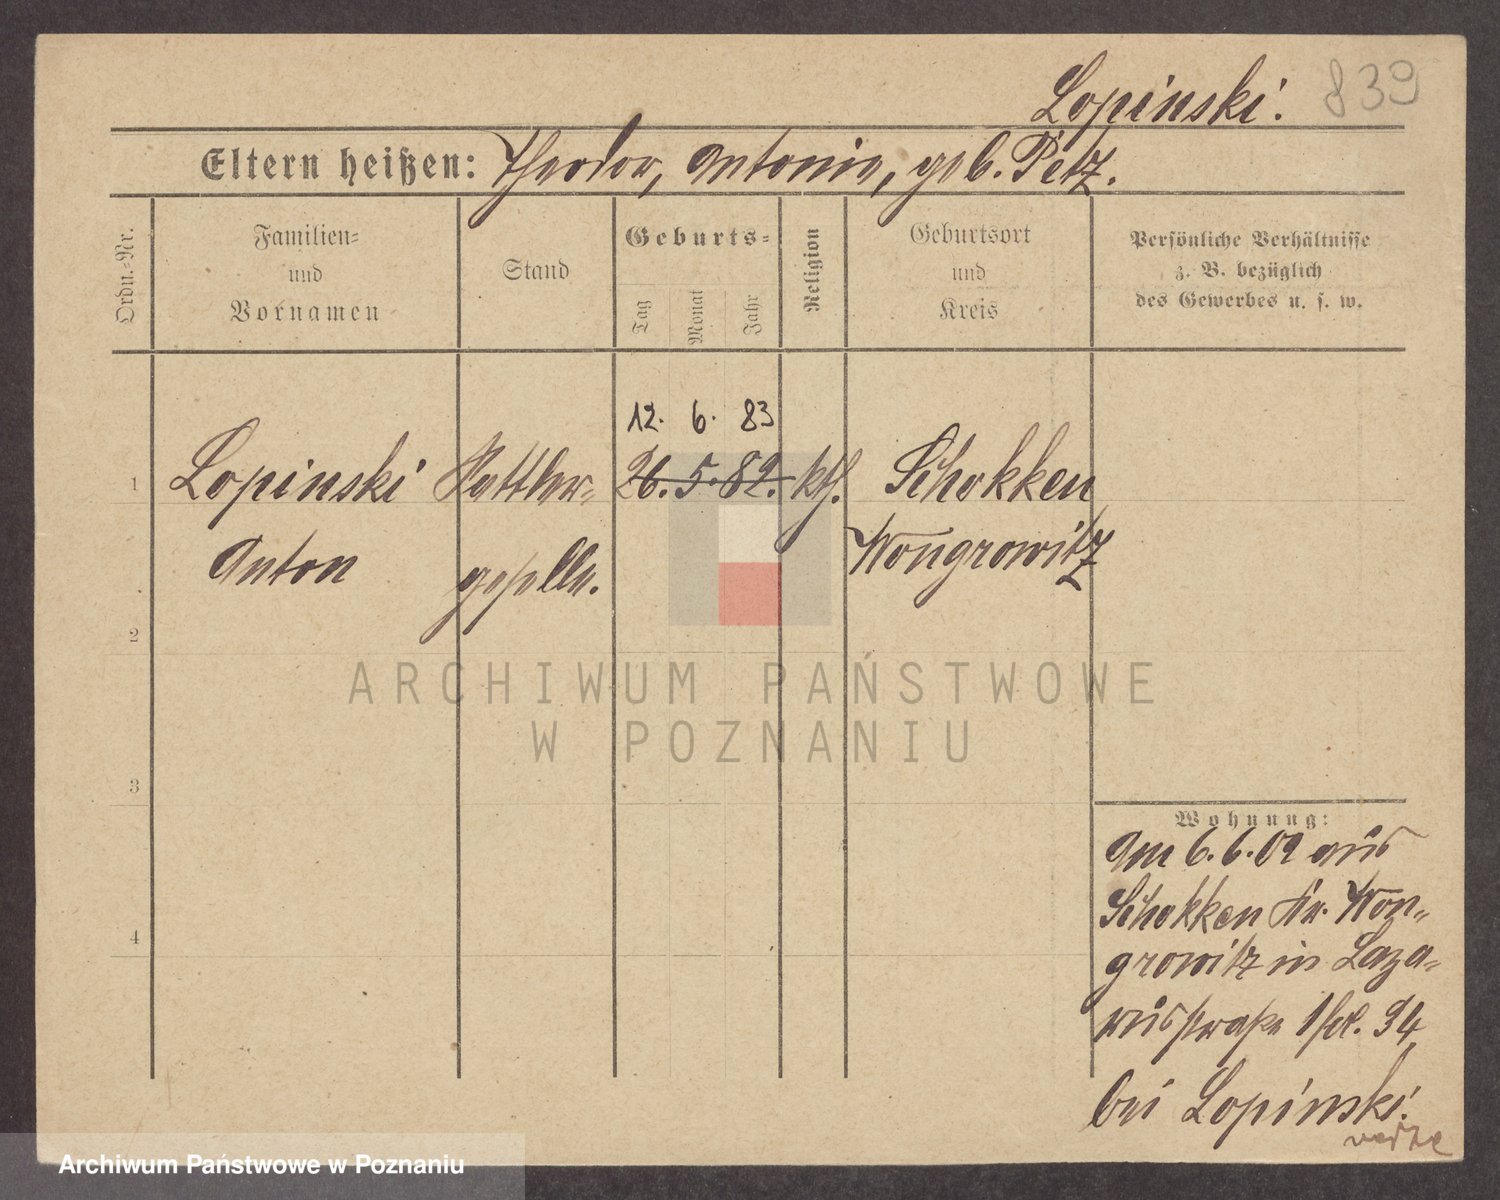 Lopinski. 839
Eltern heißen: Theodor, Antonie, geb. Petz.
Ordn.-Nr.
Familien-
und
Vornamen
Stand
Geburts-
Tag
Monat
Jahr
Religion
Geburtsort
und
Kreis
Persönliche Verhältnisse
z. B. bezüglich
des Gewerbes u. s. w.
12. 6. 83
1 Lopinski Sattler- 26. 5. 82. kth. Schokken
Anton geselle. Wongrowitz
2
3
4
Wohnung:
Am 6.6.02 aus
Schokken Kr. Won-
growitz in Laza-
russtraße 94,
bei Lopinski.
ARCHIWUM PAŃSTWOWE
W POZNANIU
Archiwum Państwowe w Poznaniu